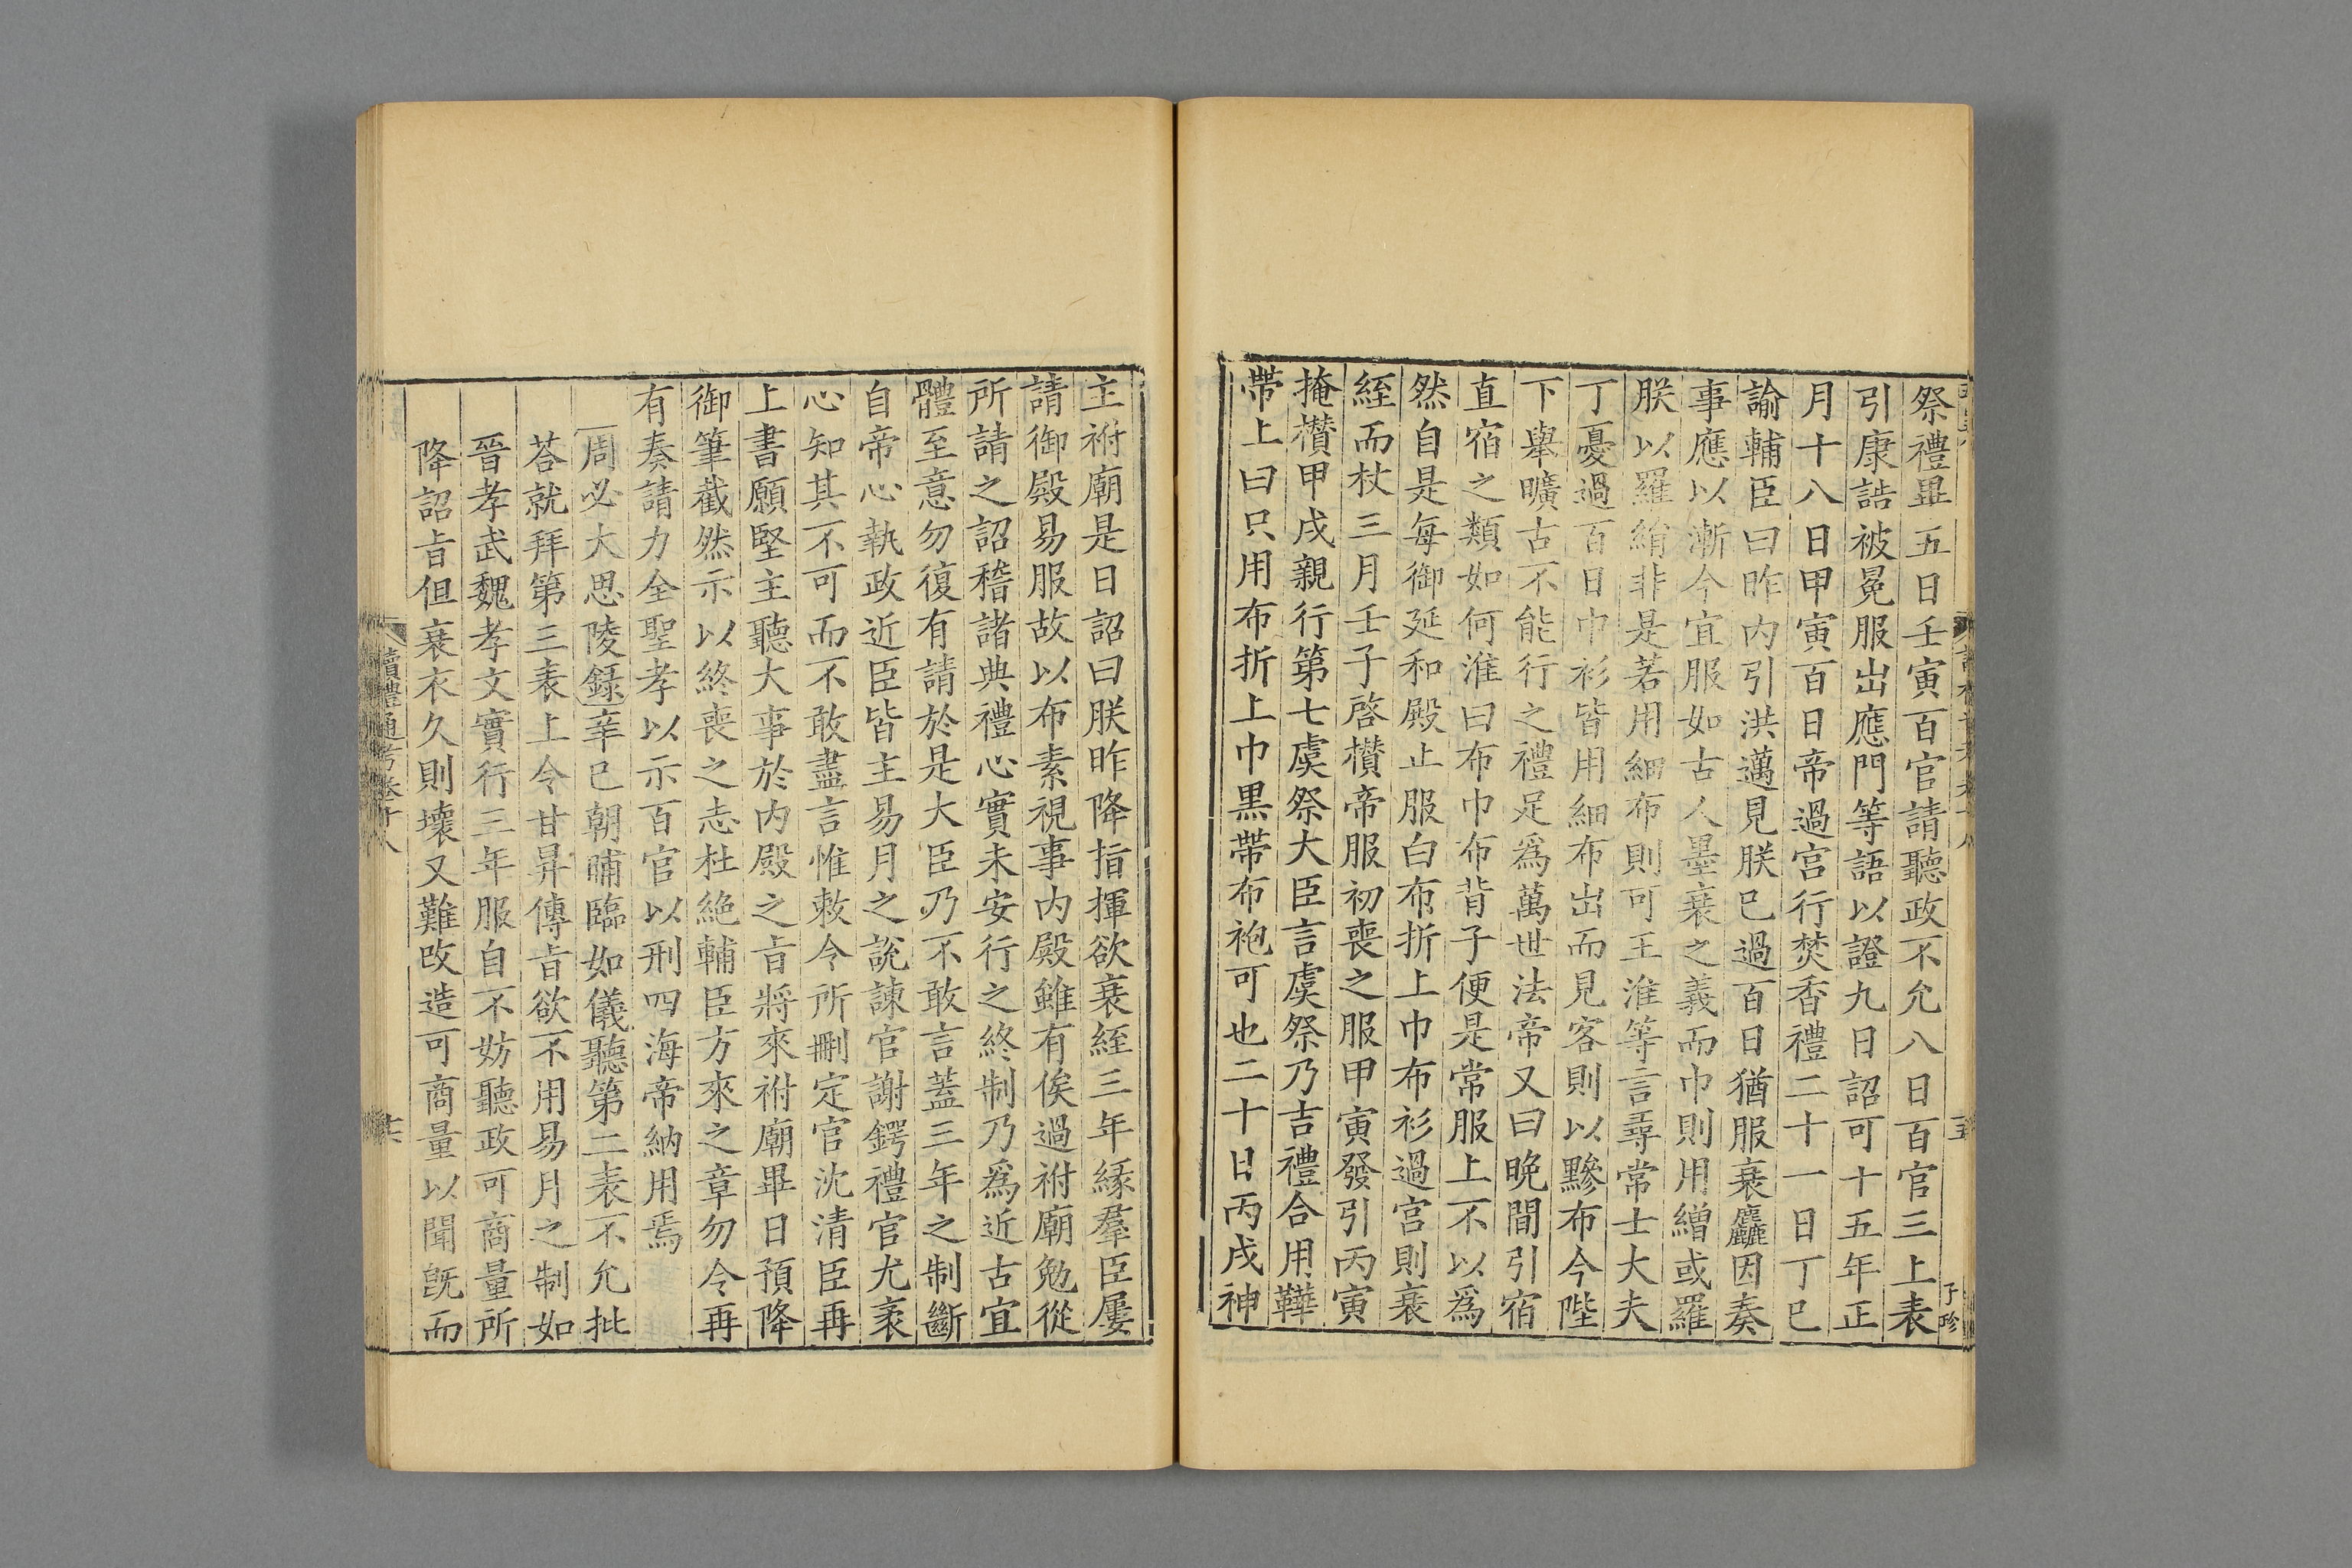 祭禮畢五日壬寅百官請聽政不允八日百官三上表
引康誥被冕服出應門等語以證九日詔可十五年正
月十八日甲寅百日帝過宮行焚香禮二十一日丁巳
諭輔臣曰昨內引洪邁見朕已過百日猶服衰麤因奏
事應以漸今宜服如古人墨衰之義而巾則用繒或羅
朕以羅絹非是若用細布則可王淮等言尋常士大夫
丁憂過百日巾衫皆用細布出而見客則以黲布今陛
下舉曠古不能行之禮足爲萬世法帝又曰晚間引宿
直宿之類如何淮曰布巾布背子便是常服上不以爲
然自是每御延和殿止服白布折上巾布衫過宮則衰
絰而杖三月壬子啓欑帝服初喪之服甲寅發引丙寅
掩欑甲戌親行第七虞祭大臣言虞祭乃吉禮合用鞾
帶上曰只用布折上巾黑帶布袍可也二十日丙戌神
主祔廟是日詔曰朕昨降指揮欲衰絰三年緣羣臣屢
請御殿易服故以布素視事內殿雖有俟過祔廟勉從
所請之詔稽諸典禮心實未安行之終制乃爲近古宜
體至意勿復有請於是大臣乃不敢言蓋三年之制斷
自帝心執政近臣皆主易月之說諫官謝鍔禮官尤袤
心知其不可而不敢盡言惟敕令所刪定官沈清臣再
上書願堅主聽大事於內殿之旨將來祔廟畢日預降
御筆截然示以終喪之志杜絕輔臣方來之章勿令再
有奏請力全聖孝以示百官以刑四海帝納用焉
周必大思陵錄辛巳朝晡臨如儀聽第二表不允批
荅就拜第三表上令甘昇傳旨欲不用易月之制如
晉孝武魏孝文實行三年服自不妨聽政可商量所
降詔旨但衰衣久則壞又難改造可商量以聞旣而
讀禮通考卷十八